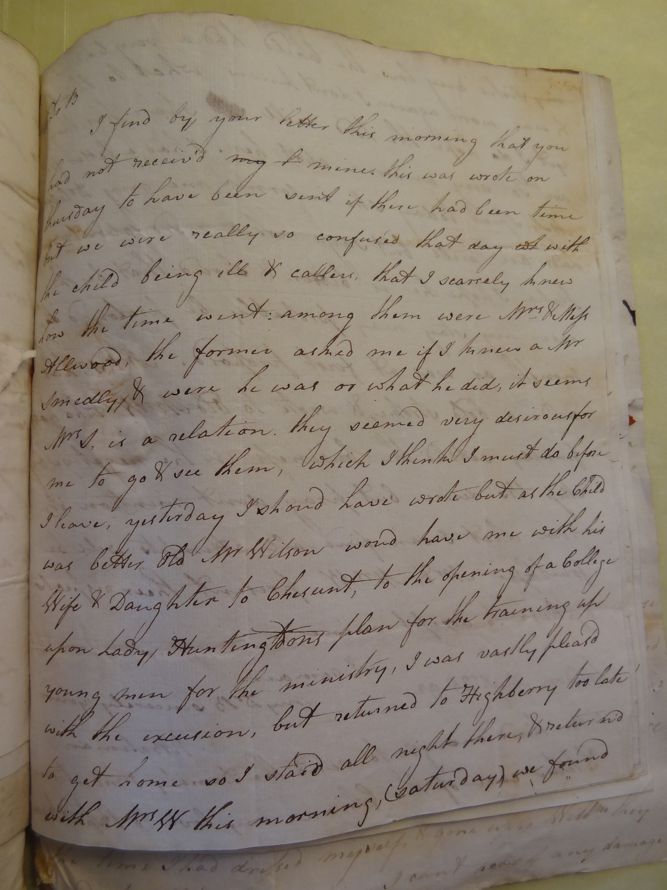 To B
I find by your letter this morning that you
had not receiv'd my l mine, this was wrote on
thursday to have been sent if there had been time
but we were really so confused that day with
the child being ill & callers, that I scarsely knew
how the time went: among them were Mrs & Miss
Allwood, the former asked me if I knew a Mr
Smedly, & were he was or what he did, it seems
Mrs S. is a relation. they seemed very desirous for
me to go & see them, which I think I must do before
I leave, yesterday I shoud have wrote but as the Child
was better Old Mr Wilson woud have me with his
Wife & Daughter to Chesunt, to the opening of a College
upon Lady Huntingtons plan for the training up
young men for the ministry, I was vastly pleasd
with the excusion, but returned to Highberry too late
to get home so I staid all night there, & returnd
with Mrs W this morning, (saturday) we found
the time I had dressed myself & gone with they
I cant any damage